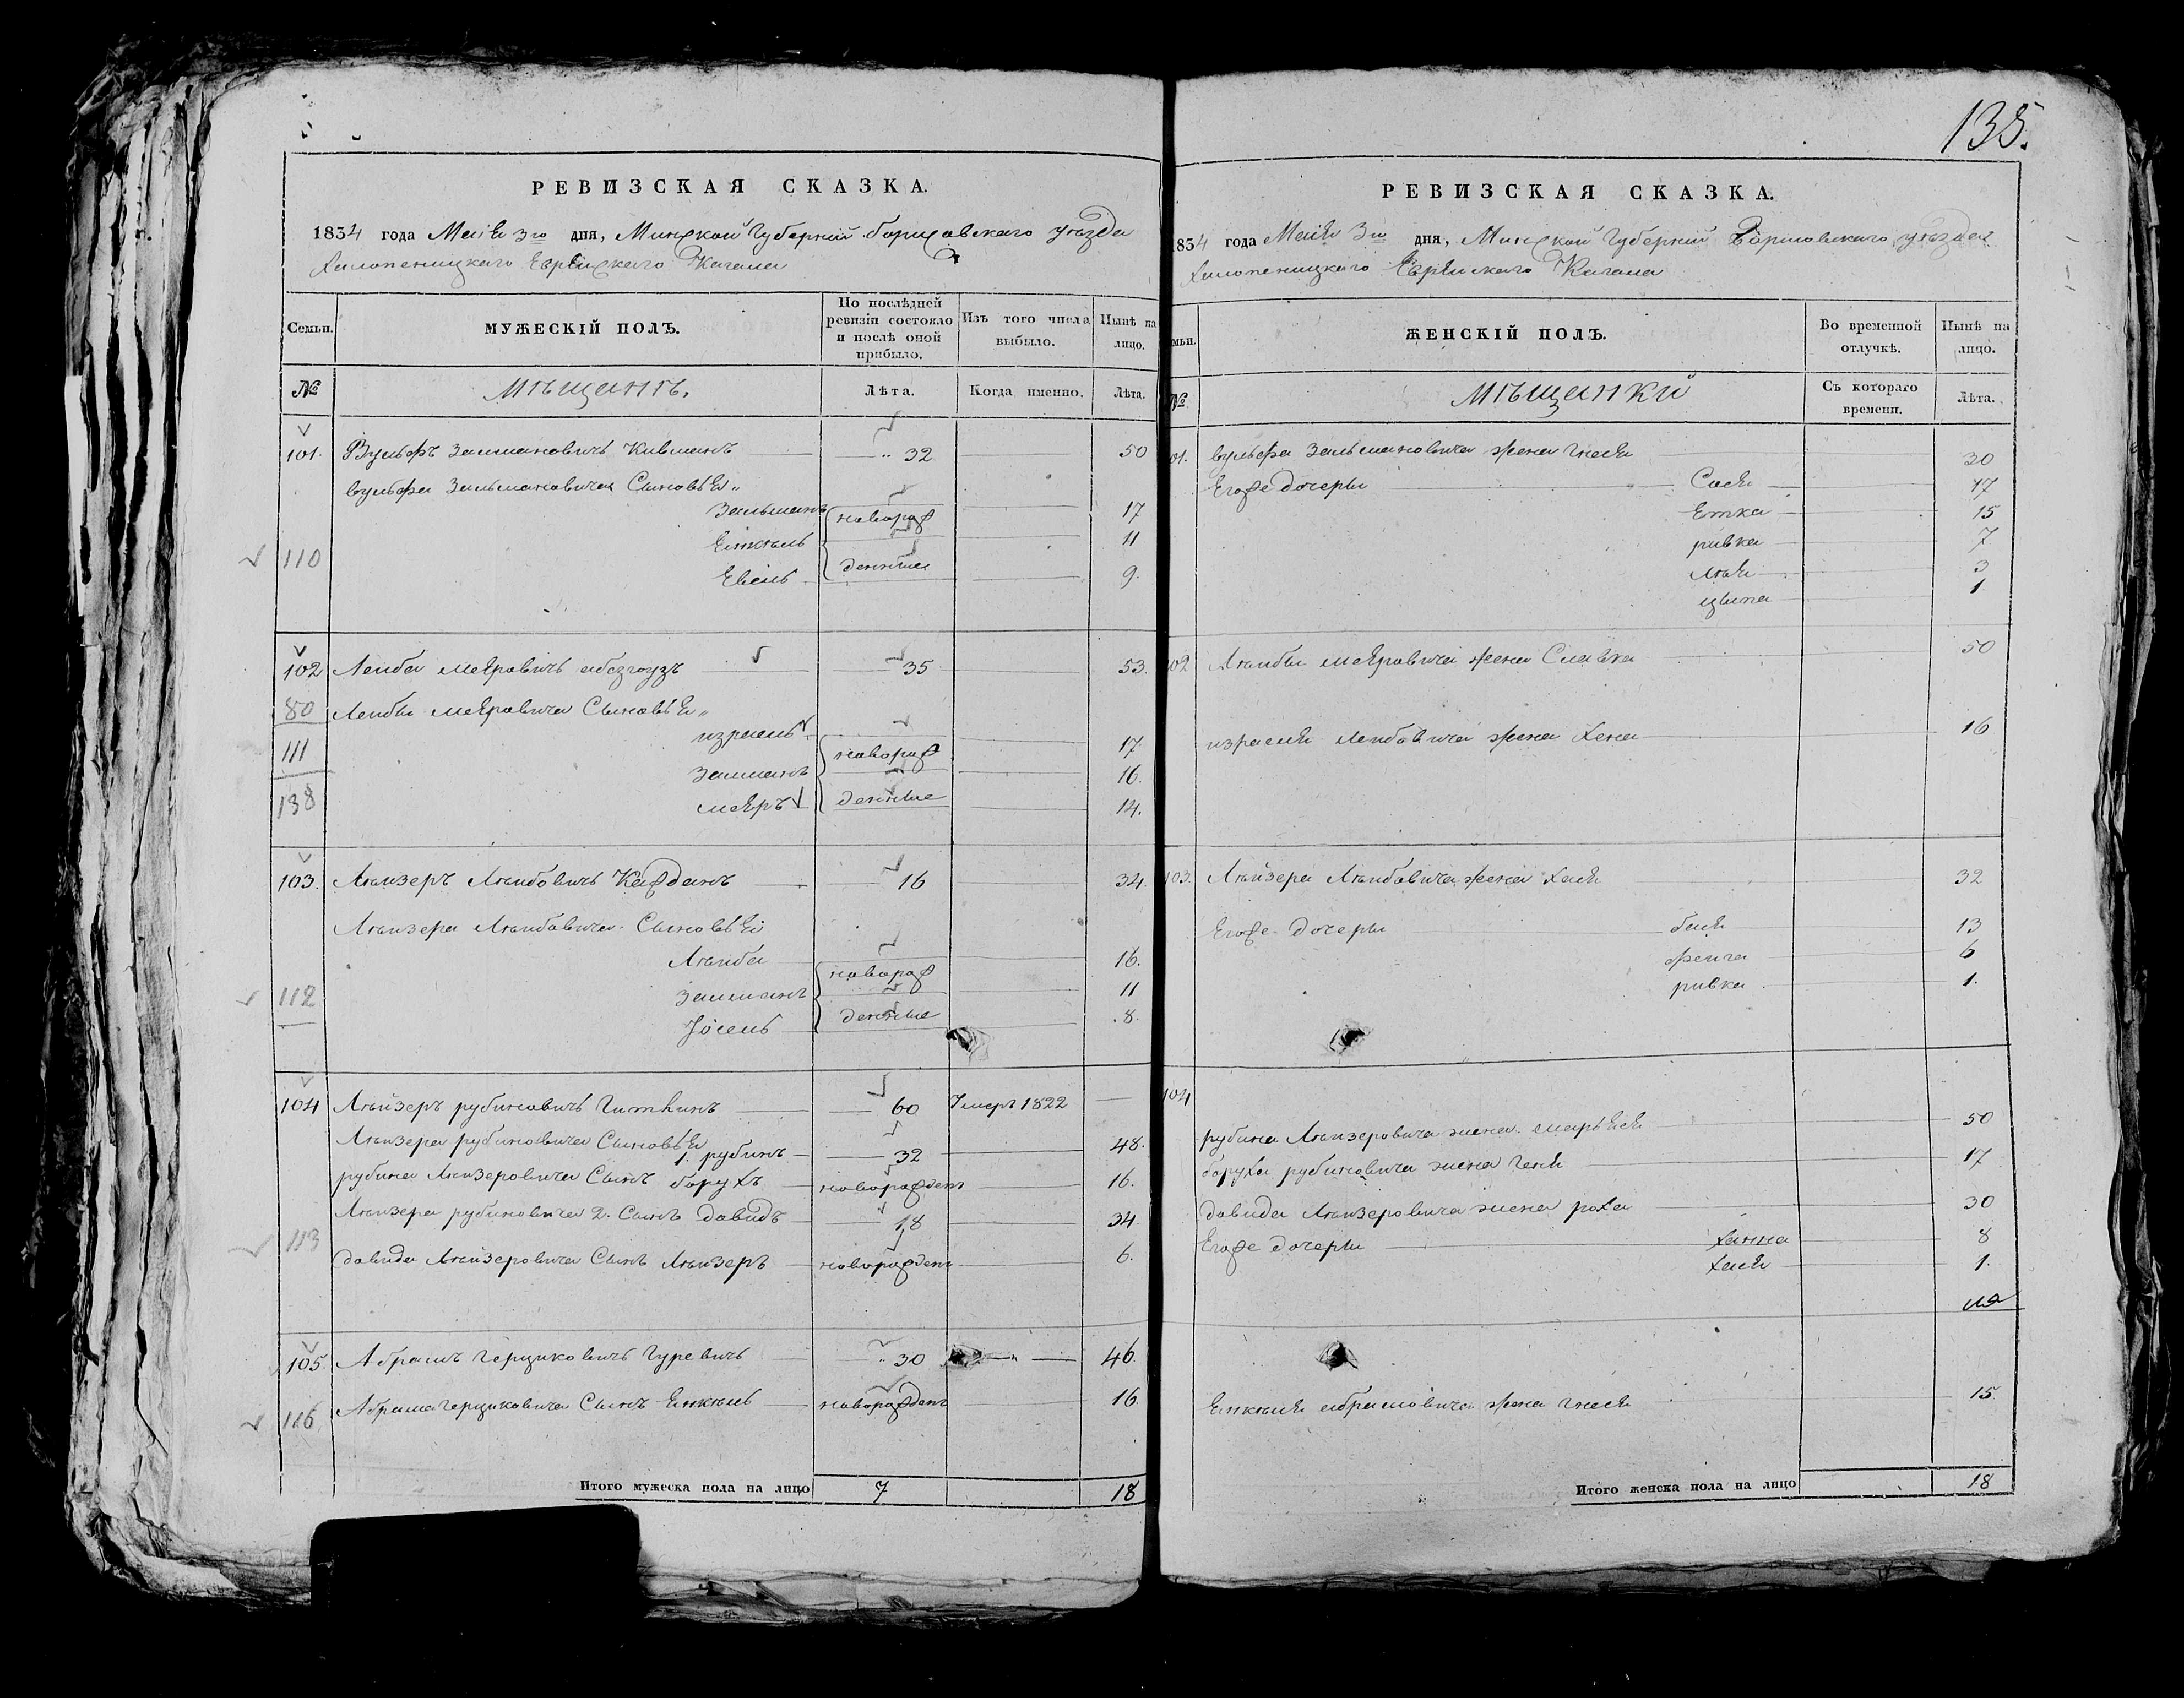 135.
РЕВИЗСКАЯ СКАЗКА.
1834 года Маія 3го дня, Минской Губерніи Борисовскаго уѣзда
Холопеницкаго Еврейскаго Кагала
Семьи.
МУЖЕСКІЙ ПОЛЪ.
По послѣдней ревизіи состояло и послѣ оной прибыло.
Изъ того числа выбыло.
Нынѣ на лицо.
№
Мѣщанѣ.
Лѣта.
Когда именно.
Лѣта.
101. Вульфъ Залмановичъ 32 50
Вульфа Зальмановича Сыновья
Зальманъ новорож 17
Еинкель 11
110 Евель денные 9.
102 Леиба Меяровичъ 35 53.
80 Леибы Меяровича Сыновья
Израель 17
111 новорож
Залманъ 16.
138 Меяръ денные 14.
103. Лѣизеръ Лѣибовичъ Кажданъ 16 34.
Лѣизера Лѣибовича Сыновья
Лѣиба новорож 16.
112 Залманъ 11
Іосель денные 8.
104 Лѣйзеръ рубиновичъ Гиткинъ 60 Умеръ 1822
Лѣизера рубиновича Сыновья
1. рубинъ 32 48.
рубина Лѣизеровича Сынъ борухъ новорожденъ 16.
Лѣизера рубиновича 2. Сынъ Давидъ 18 34.
113
давида Лѣизеровича Сынъ Лѣизеръ новорожденъ 6.
105 Абрамъ Герциковичъ Гуревичъ 30 46.
116 Абрама Герциковича Сынъ Еинкель новорожденъ 16
Итого мужеска пола на лицо 7 18
РЕВИЗСКАЯ СКАЗКА.
1834 года Маія 3го дня, Минской Губерніи Борисовскаго уѣзда
Холопеницкаго Еврейскаго Кагала
ЖЕНСКІЙ ПОЛЪ.
Во временной отлучкѣ.
Нынѣ на лицо.
№
Мѣщанки
Съ котораго времени.
Лѣта.
101. вульфа Зальмановича жена Гнеся 30
Егоже дочеры Сося 17
Етка 15
ривка 7
Лѣя 3
ципа 1
102 Лѣибы Меяровича жена Славка 50
израеля Леибовича жена Хена 16
103. Лѣйзера Лѣибовича жена Хася 32
Егоже дочеры бася 13
феига 6
ривка 1.
104
рубина Лѣизеровича жена 50
боруха рубиновича жена Геня 17
давида Лѣизеровича жена роха 30
Егоже дочеры Ханна 8
Хася 1.
Еинкеля абрамовича жена Гнеся 15
Итого женска пола на лицо 18